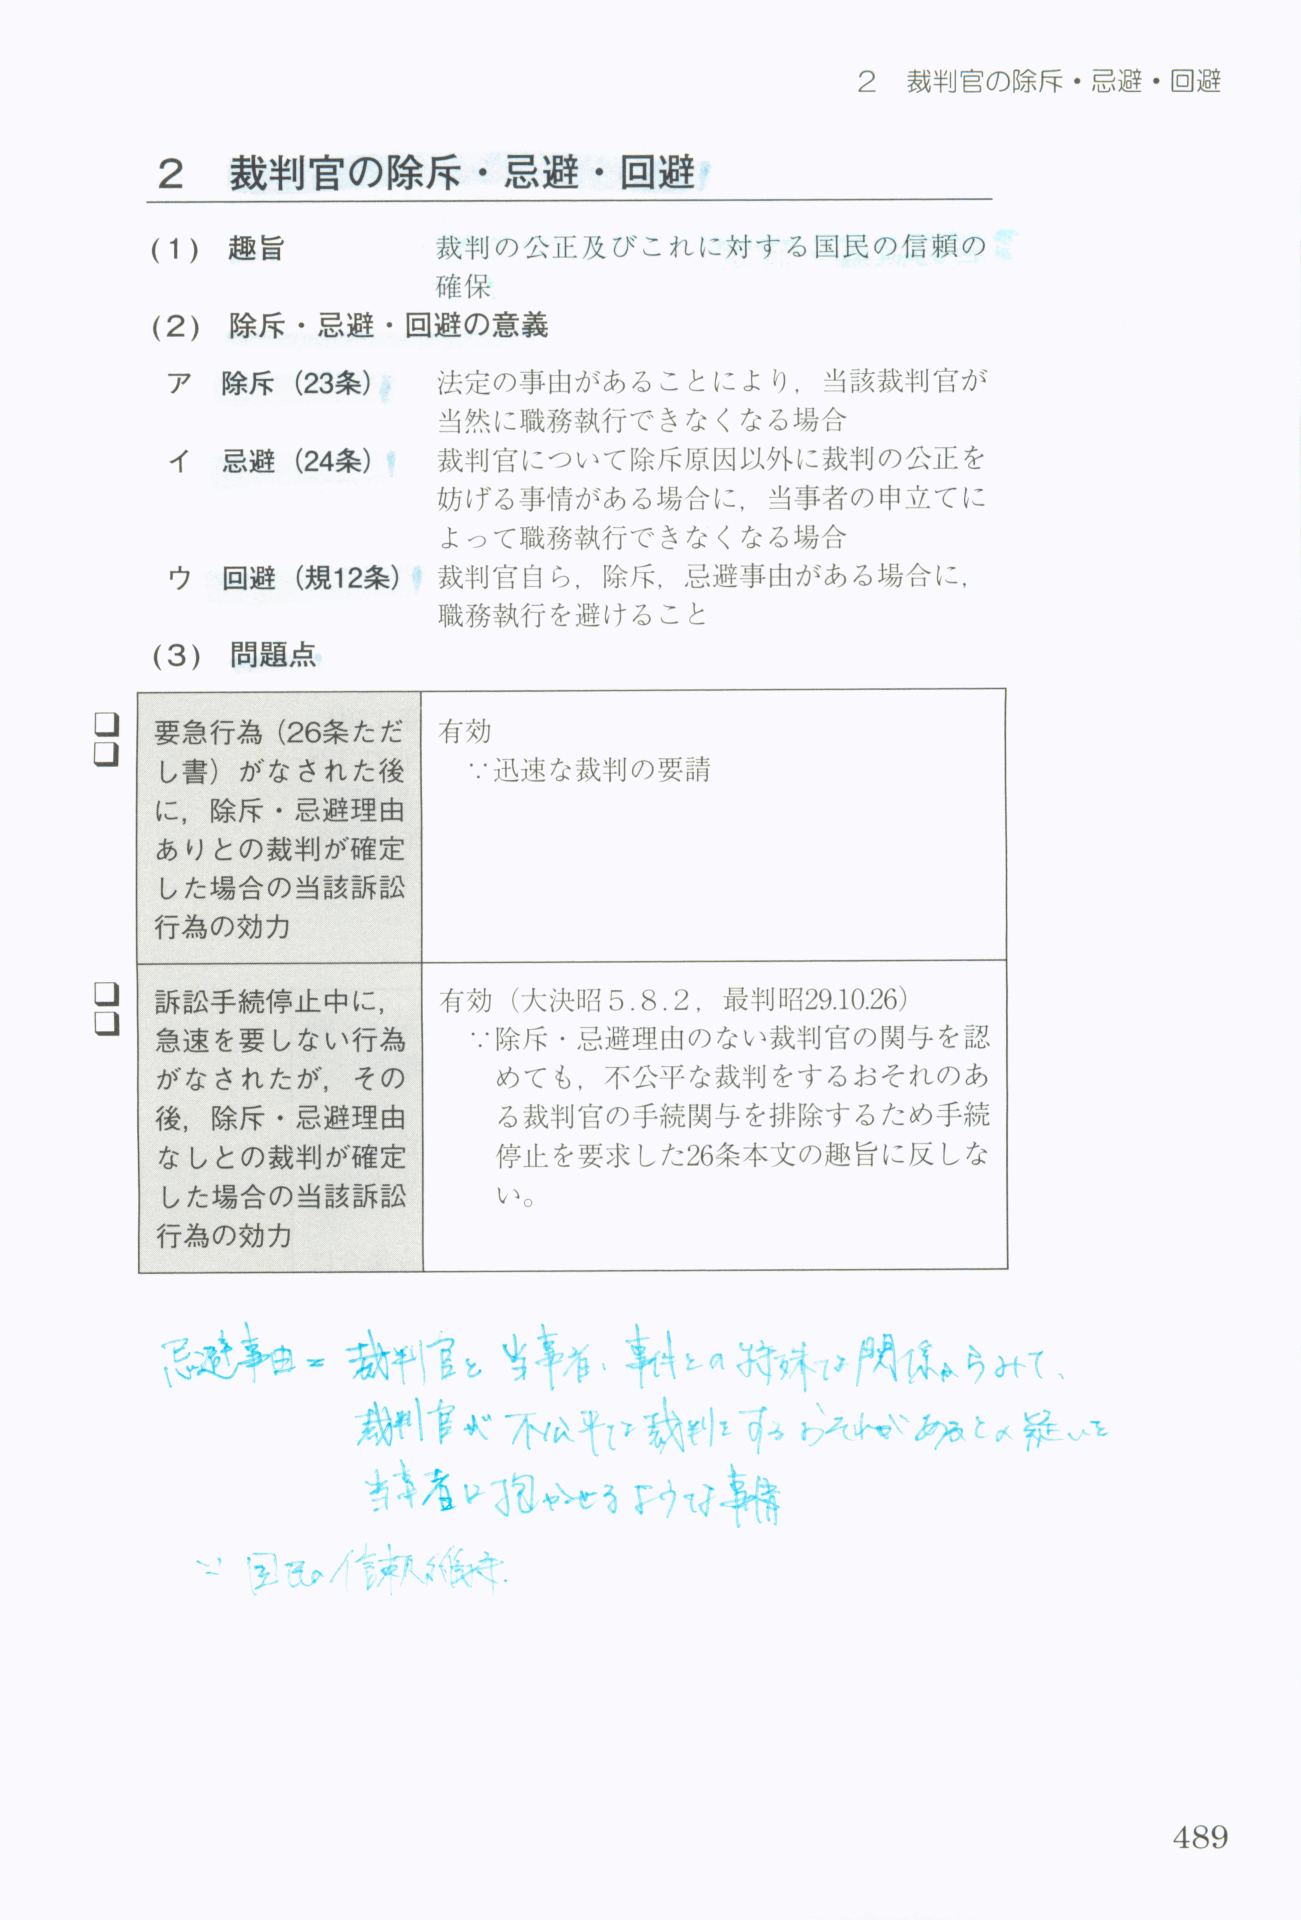 2 裁判官の除斥・忌避・回避
2 裁判官の除斥・忌避・回避
(1) 趣旨 裁判の公正及びこれに対する国民の信頼の
確保
(2) 除斥・忌避・回避の意義
ア 除斥（23条） 法定の事由があることにより，当該裁判官が
当然に職務執行できなくなる場合
イ 忌避（24条） 裁判官について除斥原因以外に裁判の公正を
妨げる事情がある場合に，当事者の申立てに
よって職務執行できなくなる場合
ウ 回避（規12条） 裁判官自ら，除斥，忌避事由がある場合に，
職務執行を避けること
(3) 問題点
要急行為（26条ただ
し書）がなされた後
に，除斥・忌避理由
ありとの裁判が確定
した場合の当該訴訟
行為の効力
有効
∵迅速な裁判の要請
訴訟手続停止中に，
急速を要しない行為
がなされたが，その
後，除斥・忌避理由
なしとの裁判が確定
した場合の当該訴訟
行為の効力
有効（大決昭5.8.2，最判昭29.10.26）
∵除斥・忌避理由のない裁判官の関与を認
めても，不公平な裁判をするおそれのあ
る裁判官の手続関与を排除するため手続
停止を要求した26条本文の趣旨に反しな
い。
忌避事由＝裁判官と当事者、事件との特殊な関係からみて、
裁判官が不公平な裁判をするおそれがあるとの疑いを
当事者に抱かせるような事情
∵国民の信頼維持.
489